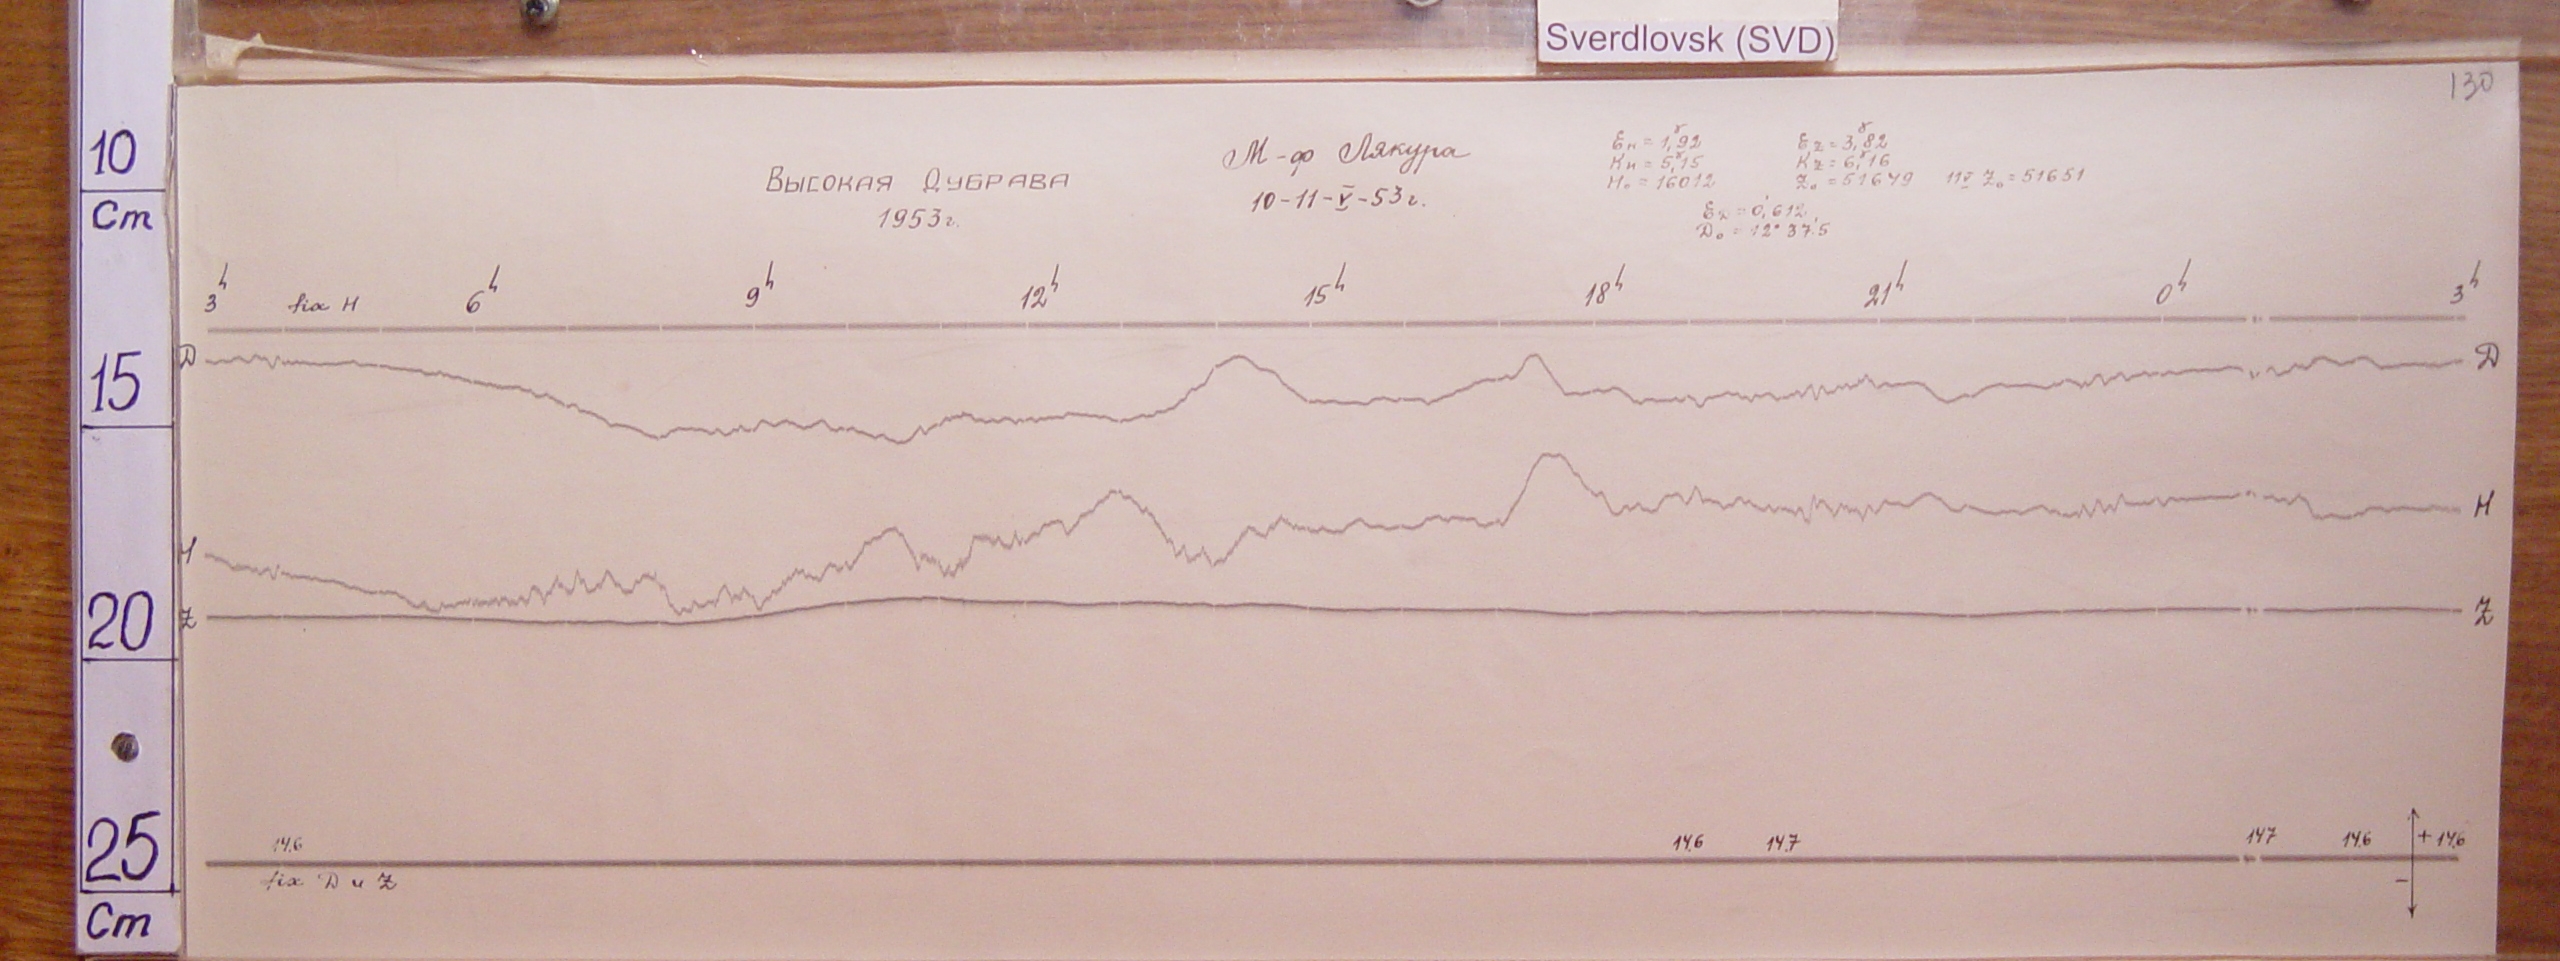 Sverdlovsk (SVD)
130
10
Cm
15
20
25
Cm
Высокая Дубрава
1953г.
М-ф Лякура
10-11-V-53г.
Ен = 1,ᵞ92
Кн = 5,ᵞ15
Но = 16012
Ez = 3,ᵞ82
Kz = 6,ᵞ16
Zo = 51649 11V Zo = 51651
ED = 0,'612
Do = 12° 37'.5
3h fix H 6h 9h 12h 15h 18h 21h 0h 3h
D D
H H
Z Z
14.6 14.6 14.7 147 14.6 + 14.6
fix D и Z −